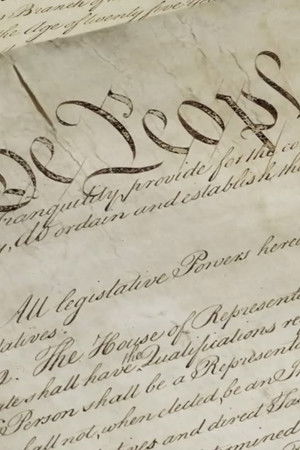 Branch of
the Age of twenty five Years
We the People
Tranquility, provide for the co
do ordain and establish this
All legislative Powers herei
tatives.
The House of Representat
State shall have the Qualifications re
Person shall be a Representat
shall not, when elected, be an In
tives and direct Tax